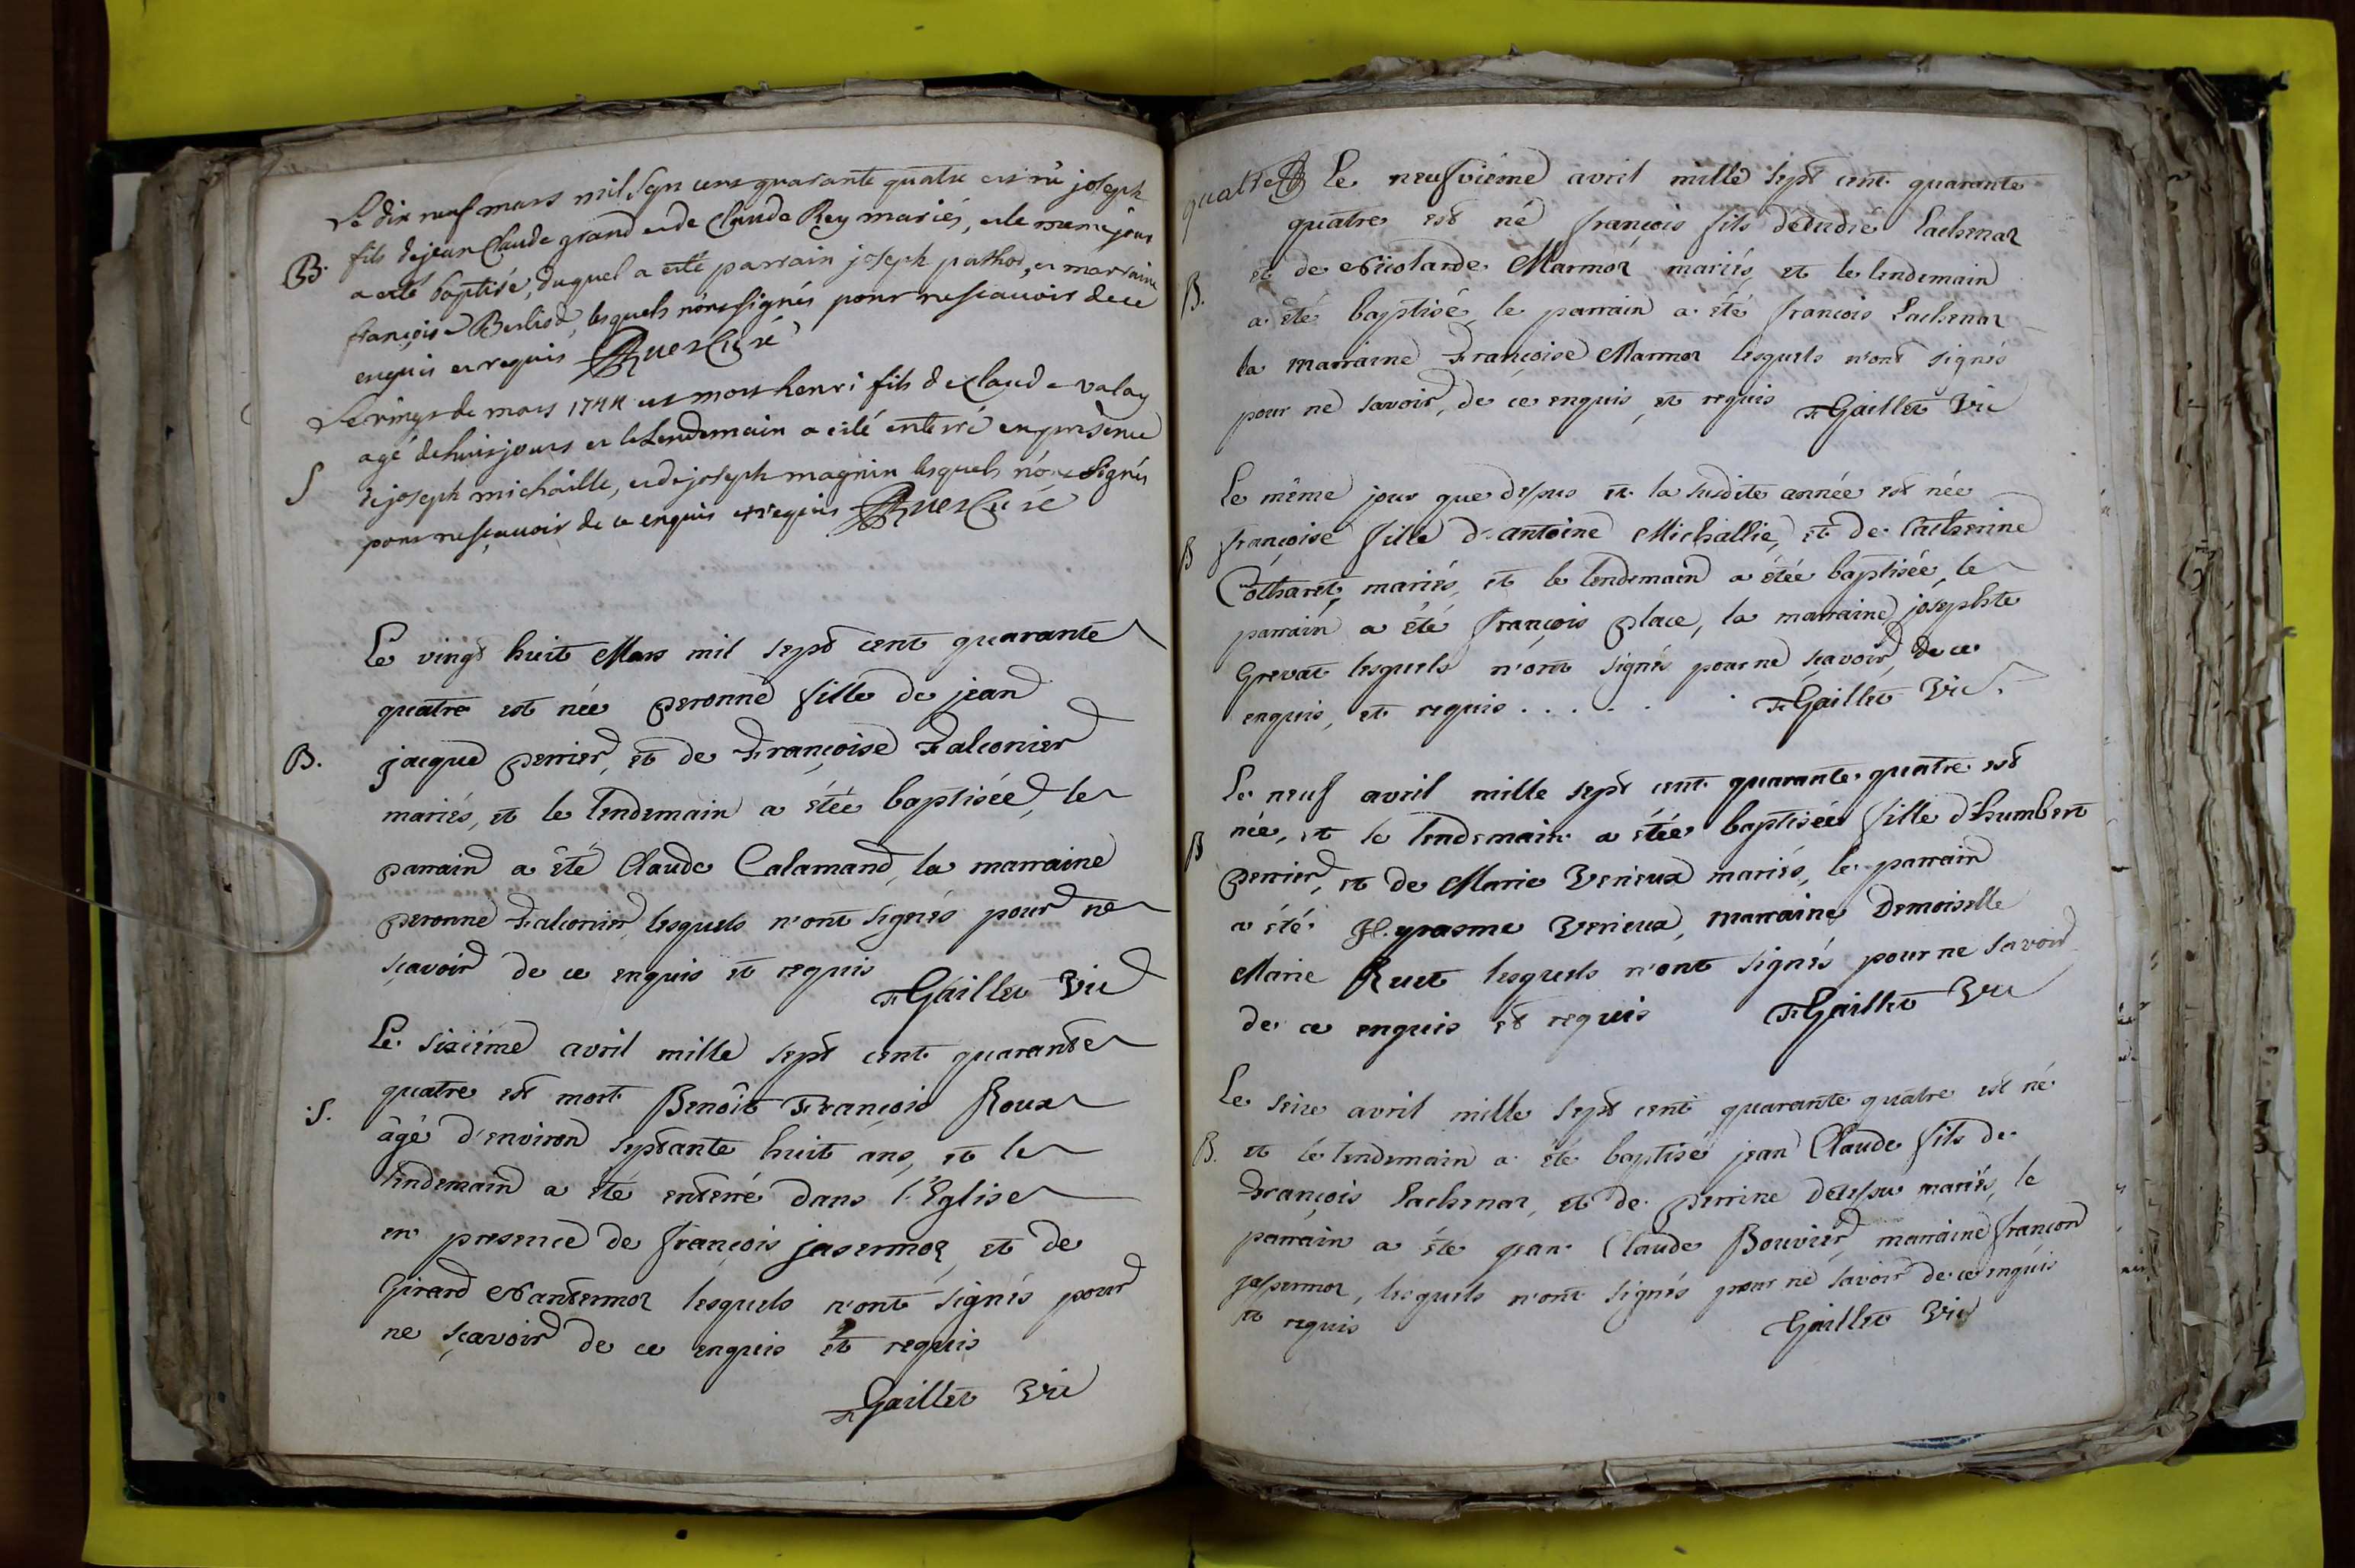 Le dix neuf mars mil sept cent quarante quatre est né joseph
B. fils de jean Claude grand et de Claude Rey mariés, et le meme jour
a esté baptisé, duquel a esté parrain joseph pathod, et marraine
françoise Berliod, lesquels n'ont signés pour ne scavoir de ce
enquis et requis Ruer Curé
Le vingt de mars 1744 est mort henri fils de Claude valay
agé de huit jours et le Lendemain a esté enterré en présence
S de joseph michaille, et de joseph magnin lesquels n'ont Signés
pour ne sçavoir de ce enquis et requis Ruer Curé
Le vingt huit Mars mil sept cent quarante
quatre est née peronne fille de jean
B. jacque perrier, et de Françoise Falconier
mariés, et le lendemain a étée baptisée, le
parrain a été Claude Calamand, la marraine
peronne Falconier, lesquels n'ont signés pour ne
sçavoir de ce enquis et requis
F Gaillet Vic
Le sixiéme avril mille sept cent quarante
S. quatre est mort Benoît François Roux
âgé d'environ septante huit ans, et le
lendemain a été enterré dans l'Eglise
en presence de françois jasermoz, et de
Girard Nantermoz lesquels n'ont signés pour
ne sçavoir de ce enquis et requis
F Gaillet Vic
quatre Le neufviéme avril mille sept cent quarante
quatre est né françois fils Lachenaz
B. et de Nicolarde Marmoz mariés, et le lendemain
a été baptisé, le parrain a été françois Lachenaz
la marraine Françoise Marmoz lesquels n'ont signés
pour ne savoir, de ce enquis, et requis F Gaillet Vic
Le même jour que dessus et la susdite année est née
B françoise fille d'antoine Michallie, et de Catherine
Cotharet, mariés, et le lendemain a étée baptisée, le
parrain a été françois place, la marraine josephte
Grevat lesquels n'ont signés pour ne sçavoir, de ce
enquis, et requis . . . . . . F Gaillet Vic.
Le neuf avril mille sept cent quarante quatre est
B née, et le lendemain a étée baptisée fille d'humbert
perrier, et de Marie Verieux mariés, le parrain
a été Verieux, marraine Demoiselle
Marie Ruet lesquels n'ont signés pour ne savoir
de ce enquis et requis F Gaillet Vic
Le seize avril mille sept cent quarante quatre est né
B. et le lendemain a été baptisé jean Claude fils de
François Lachenaz, et de perrine mariés, le
parrain a été jean Claude Bouvier, marraine françon
jasermoz, lesquels n'ont signés pour ne savoir de ce enquis
et requis
F Gaillet Vic